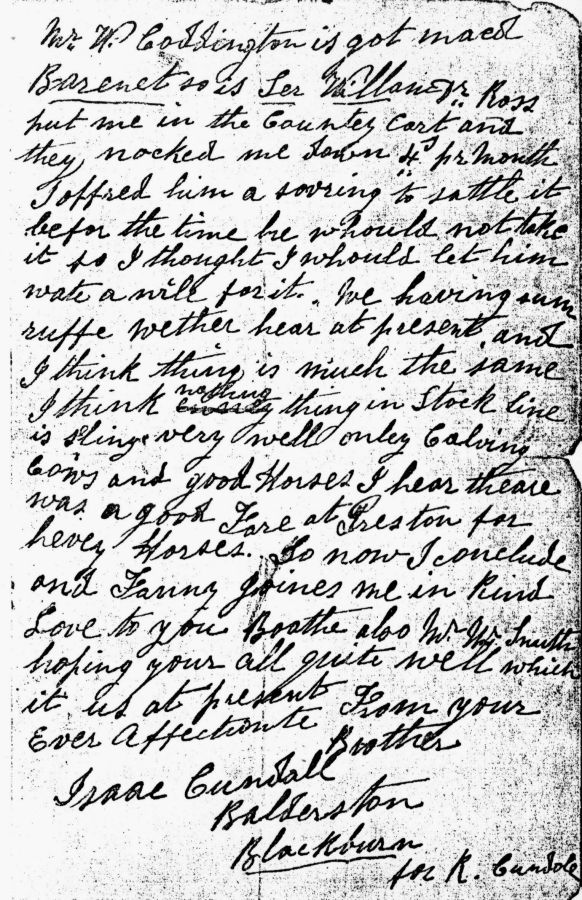 Mr W. Coddington is got maed
Barenet so is Ser William Dr Ross
put me in the Countey Cort and
they nocked me down 4s pr Month
I offred him a sovring to sattle it
befor the time he whould not take
it so I thought I whould let him
wate a wile for it. We having sum
ruffe wether hear at present and
I think thing is much the same
I think nothing thing in Stock line
is sling very well onley Calving
Cows and good Horses I hear theare
was a good Fare at Preston for
hevey Horses. So now I conclude
and Fanny Joines me in Kind
Love to you Boathe also Mr Mrs Smith
hoping your all quite well which
it us at present From your
Ever Affectionte Brother
Isaac Cundall
Balderston
Blackburn
for R. Cundale